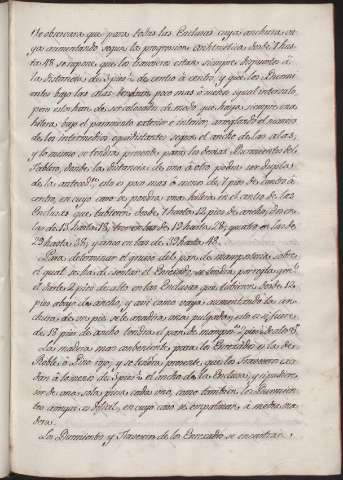 Se observara que para todas las Esclusas cuya anchura va-
ya aumentando segun la progresion arithmetica desde 7 has-
ta 48 se supone que los traveseros estan siempre dispuestos à
la distancia de 3 pies de centro à centro, y que los Durmien-
tes bajo las alas tendran poco mas ò menos igual intervalo,
pero estos han de ser colocados de modo que haya siempre una
hilera bajo el paramento exterior è interior, arreglando el numero
de los intermedios equidistantes segun el ancho de las alas;
y lo mismo se tendrà presente para los demas Durmientes del
Tablero, donde la distancia de uno à otro podrà ser dupla
de la anteced.te, esto es poco mas ò menos de 7 pies de centro à
centro, en cuyo caso se pondrà una hilera en el centro de las
Esclusas que tubieren desde 7 hasta 12 pies de ancho; dos en
las de 13 hasta 18; tres en las de 19 hasta 28; quatro en las de
29 hasta 38; y cinco en las de 39 hasta 48.
Para determinar el grueso del plan de mamposteria sobre
el qual se ha de sentar el Enrexado, se tendrà por regla, que
el darle 2 pies de alto en las Esclusas que tubieren desde 12
pies abajo de ancho, y asi como vaya aumentando la an-
chura, de seis pies se le añadirà una pulgada; esto es si fuere
de 18 pies de ancho tendrà el plan de mamp.ria
Las maderas mas convenientes para los Enrexados es la de
Roble, ò Pino rojo, y se tendrà presente, que los Traveseros exce-
dan à lo menos de 3 pies el ancho de la Esclusa, y si pudiere
ser de una sola pieza cada uno, como tambien los Durmien-
tes aunque es dificil, en cuyo caso se empalman à media ma-
dera.
Los Durmientes y Traveseros de los Enrexados se encontraràn